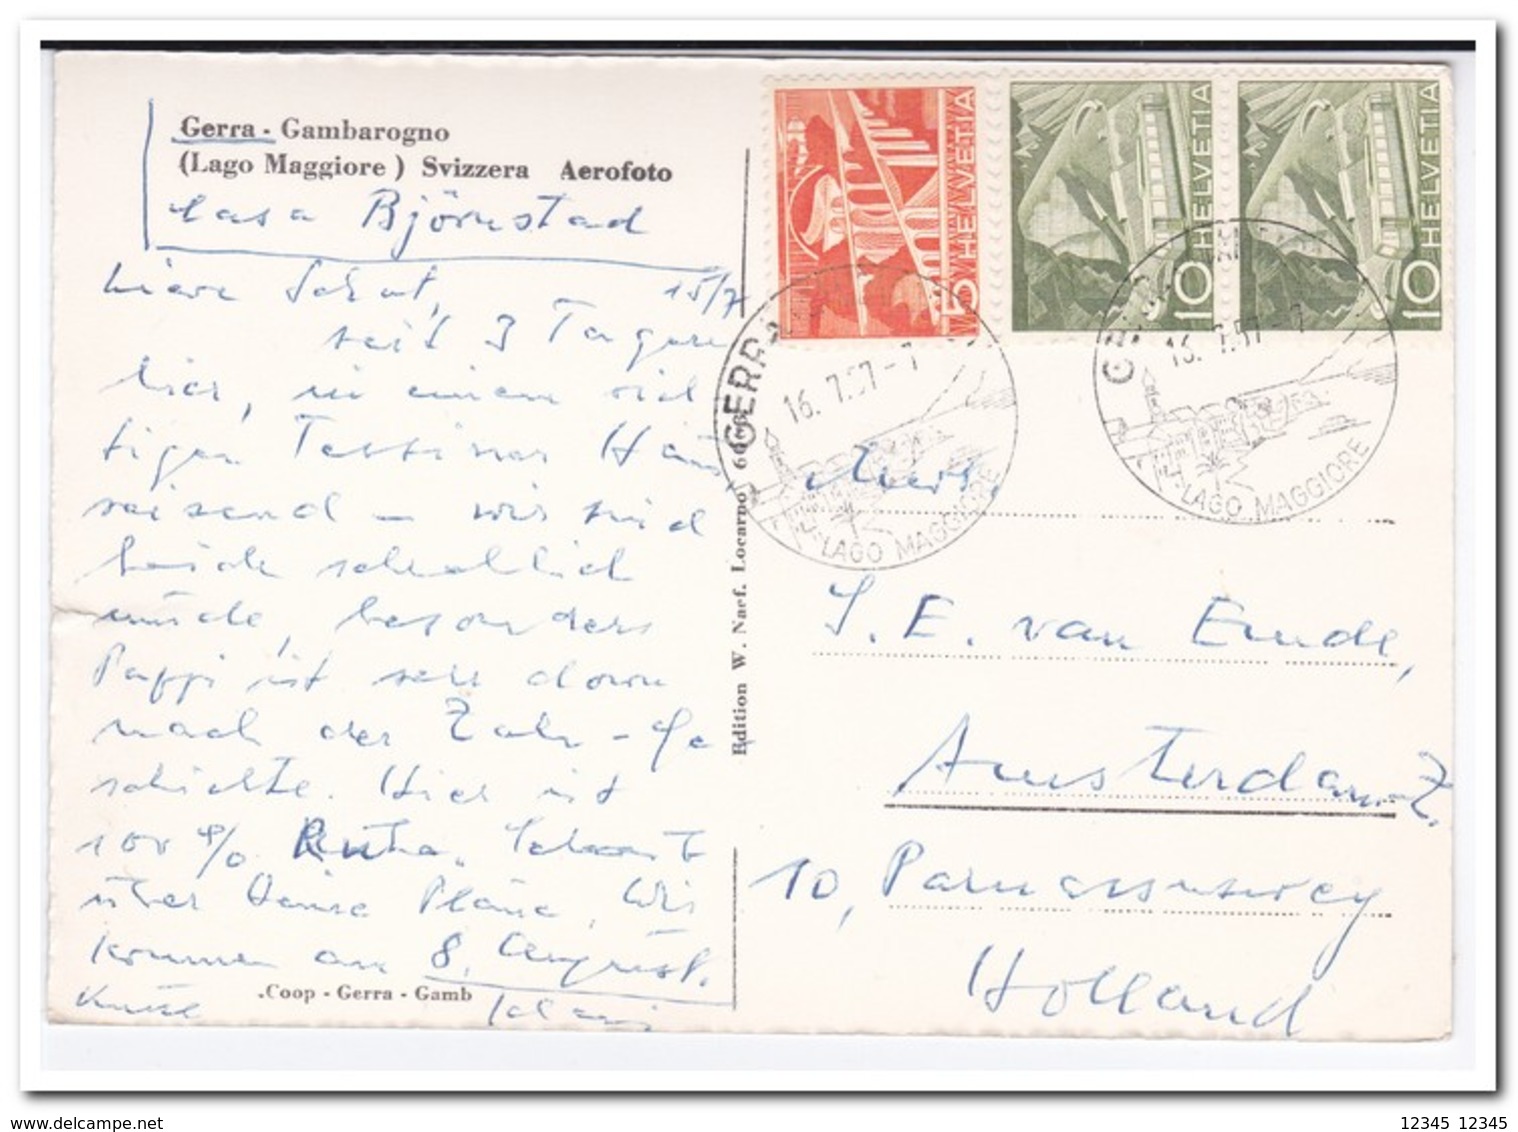 Gerra - Gambarogno
(Lago Maggiore) Svizzera Aerofoto
Casa Björnstad
15/7
seit 3 Tagen
hier, in einem
Tessiner
reisend – wir sind
beide schrecklich
müde, besonders
Pappi ist sehr down
nach der Zahn-Ge
schichte. Hier ist
100 % Ruhe. Schreib
über Deine Pläne, Wir
kommen am 8. August.
.Coop - Gerra - Gamb
Edition W. Naef. Locarno
5 HELVETIA
10 HELVETIA
10 HELVETIA
GERRA
16. 7. 57 - 7
LAGO MAGGIORE
16. 7. 57 - 7
LAGO MAGGIORE
S. E. van Emde,
Amsterdam-Z.
10, Parnassusweg
Holland
www.delcampe.net
12345 12345